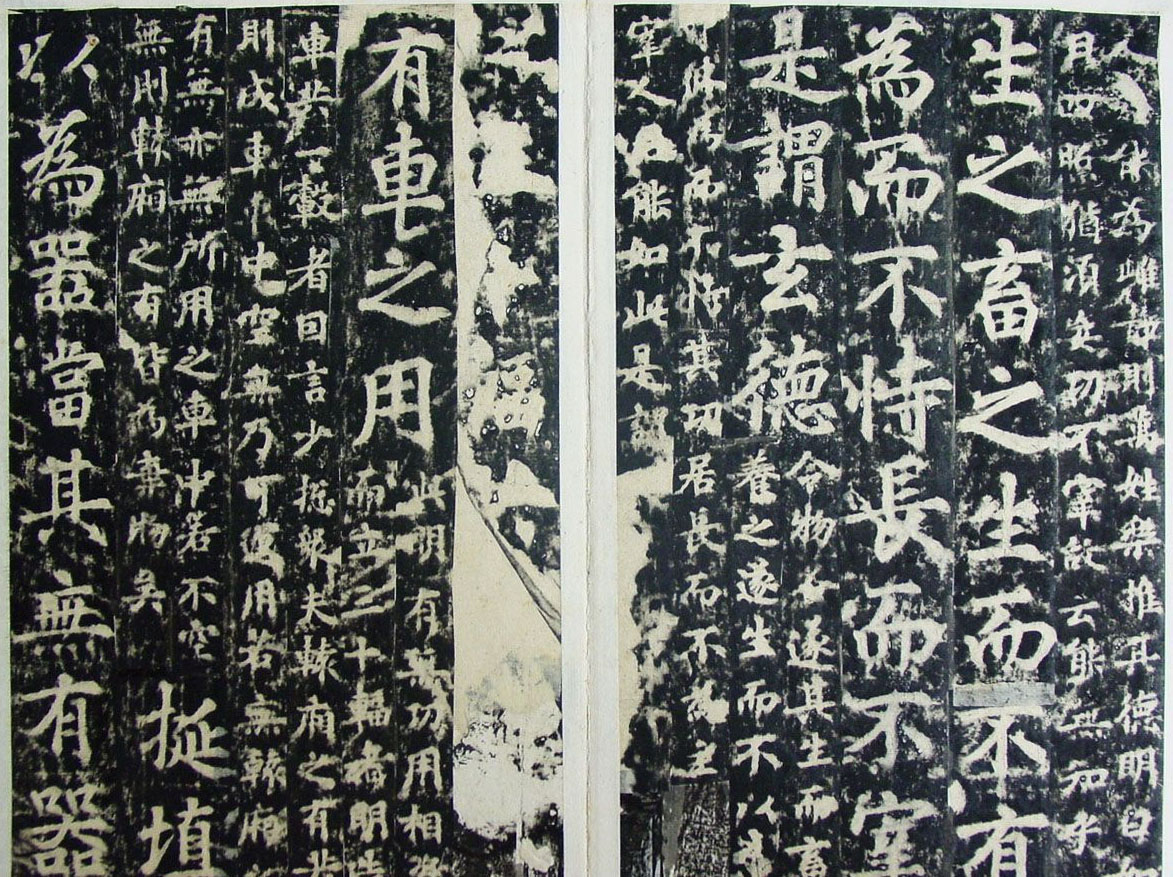 能為雌静則萬姓樂推其德明白如
日四照猶須忘功不宰故云能無知乎
生之畜之生而不有
為而不恃長而不宰
是謂玄德
令物各遂其生而畜
養之遂生而不以為
為而不恃其功居長而不為主
宰人君能如此是謂
有車之用
此明有無功用相資
而立三十輻者明造
車共一轂者因言少總衆夫轅廂之有共
則成車中也空無乃可運用若無轅廂
有無亦無所用之車中若不空
無則轅廂之有皆為棄物矣
埏埴
以為器當其無有器